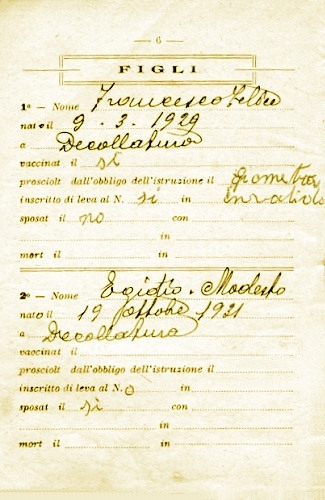 — 6 —
FIGLI
1º — Nome Francesco
nato il 9 . 3 . 1929
a Decollatura
vaccinat il si
prosciolt dall'obbligo dell'istruzione il geometra
inscritto di leva al N. si in
sposat il no con
in
mort il in
2º — Nome Egidio . Modesto
nato il 19 ottobre 1931
a Decollatura
vaccinat il
prosciolt dall'obbligo dell'istruzione il
inscritto di leva al N. o in
sposat il si con
in
mort il in